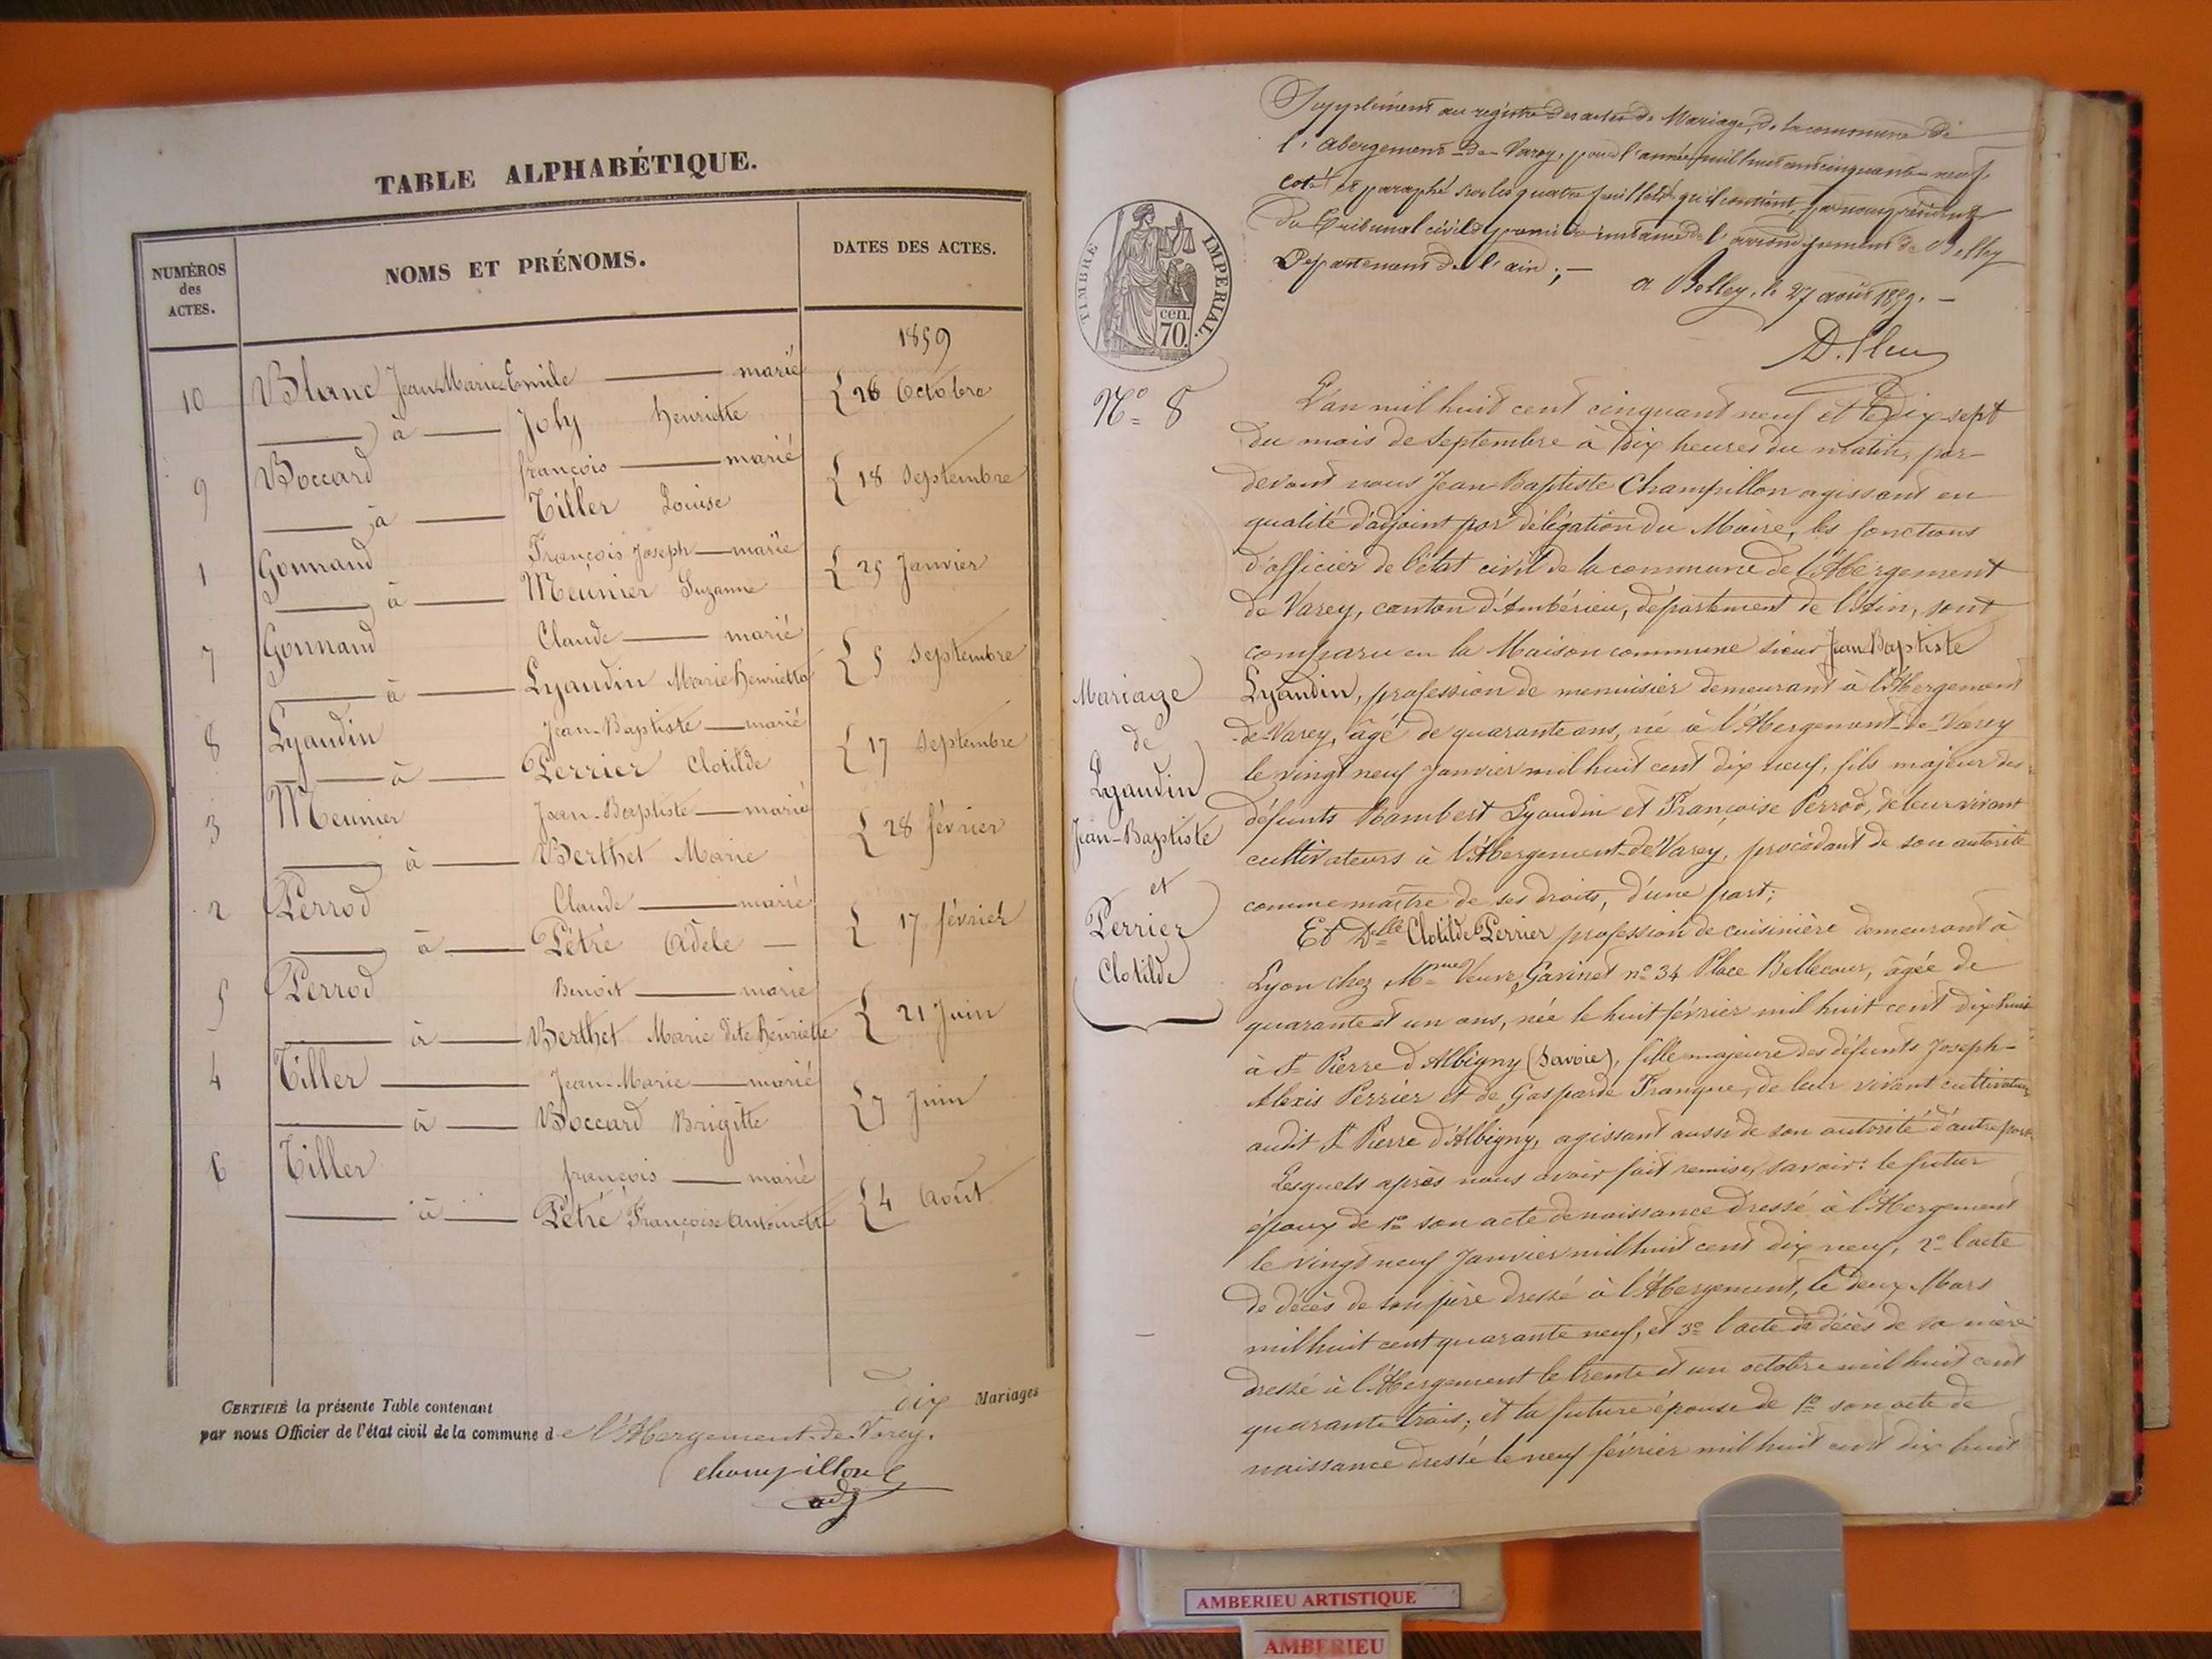 TABLE ALPHABÉTIQUE.
NUMÉROS des ACTES.
NOMS ET PRÉNOMS.
DATES DES ACTES.
1859
10 Blanc Jean Marie Emile — marié
à — Joly henriette { 28 Octobre
9 Boccard françois — marié
à — Tiller Louise { 18 Septembre
1 Gonnand François Joseph — marié
à — Meunier Suzanne { 25 Janvier
7 Gonnand Claude — marié
à — Lyaudin Marie henriette { 5 Septembre
8 Lyaudin Jean-Baptiste — marié
à — Perrier Clotilde { 17 Septembre
3 Meunier Jean-Baptiste — marié
à — Berthet Marie { 28 février
2 Perrod Claude — marié
à — Pétré Adèle — { 17 février
5 Perrod Benoit — marié
à — Berthet Marie dite henriette { 21 Juin
4 Tiller — Jean-Marie — marié
à — Boccard Brigitte { 7 Juin
6 Tiller françois — marié
à — Pétré Françoise Antoinette { 4 Août
CERTIFIÉ la présente Table contenant dix Mariages
par nous Officier de l'état civil de la commune de l'Abergement-de-Varey.
Champillon
adj
Supplément au registre des actes de Mariage, de la commune de
l'abergement-de-Varey, pour l'année mil huit cent cinquante-neuf,
coté et paraphé sur les quatre feuillets qu'il contient, par nous président
du Tribunal civil de première instance de l'arrondissement de Belley
Département de l'ain; —
a Belley, le 27 août 1859. —
TIMBRE IMPÉRIAL.
70. cen.
N° 8
Mariage
de
Lyaudin
Jean-Baptiste
et
Perrier
Clotilde
L'an mil huit cent cinquant neuf et le dix-sept
du mois de septembre à dix heures du matin, par-
devant nous Jean Baptiste Champillon agissant en
qualité d'adjoint par délégation du Maire, les fonctions
d'officier de l'état civil de la commune de l'Abergement
de Varey, canton d'Ambérieu, département de l'Ain, sont
comparu en la Maison commune sieur Jean Baptiste
Lyaudin, profession de menuisier demeurant à l'Abergement
de Varey, âgé de quarante ans, né à l'Abergement-de-Varey
le vingt neuf janvier mil huit cent dix neuf, fils majeur des
défunts Rambert Lyaudin et Françoise Perrod, de leur vivant
cultivateurs à l'Abergement-de Varey, procédant de son autorité
comme maître de ses droits, d'une part;
Et Dlle Clotilde Perrier profession de cuisinière demeurant à
Lyon chez Mme Veuve Gavinet n° 34 Place Bellecour, âgée de
quarante et un ans, née le huit février mil huit cent dix huit
à St Pierre d'Albigny (Savoie), fille majeure des défunts Joseph-
Alexis Perrier et de Gasparde Franque, de leur vivant cultivateurs
audit St Pierre d'Albigny, agissant aussi de son autorité d'autre part.
Lesquels après nous avoir fait remise, savoir: le futur
époux de 1° son acte de naissance dressé à l'Abergement
le vingt neuf Janvier mil huit cent dix neuf, 2° l'acte
de décès de son père dressé à l'Abergement, le deux Mars
mil huit cent quarante neuf, et 3° l'acte de décès de sa mère
dressé à l'Abergement le trente et un octobre mil huit cent
quarante trois; et la future épouse de 1° son acte de
naissance dressé le neuf février mil huit cent dix huit
AMBERIEU ARTISTIQUE
AMBERIEU